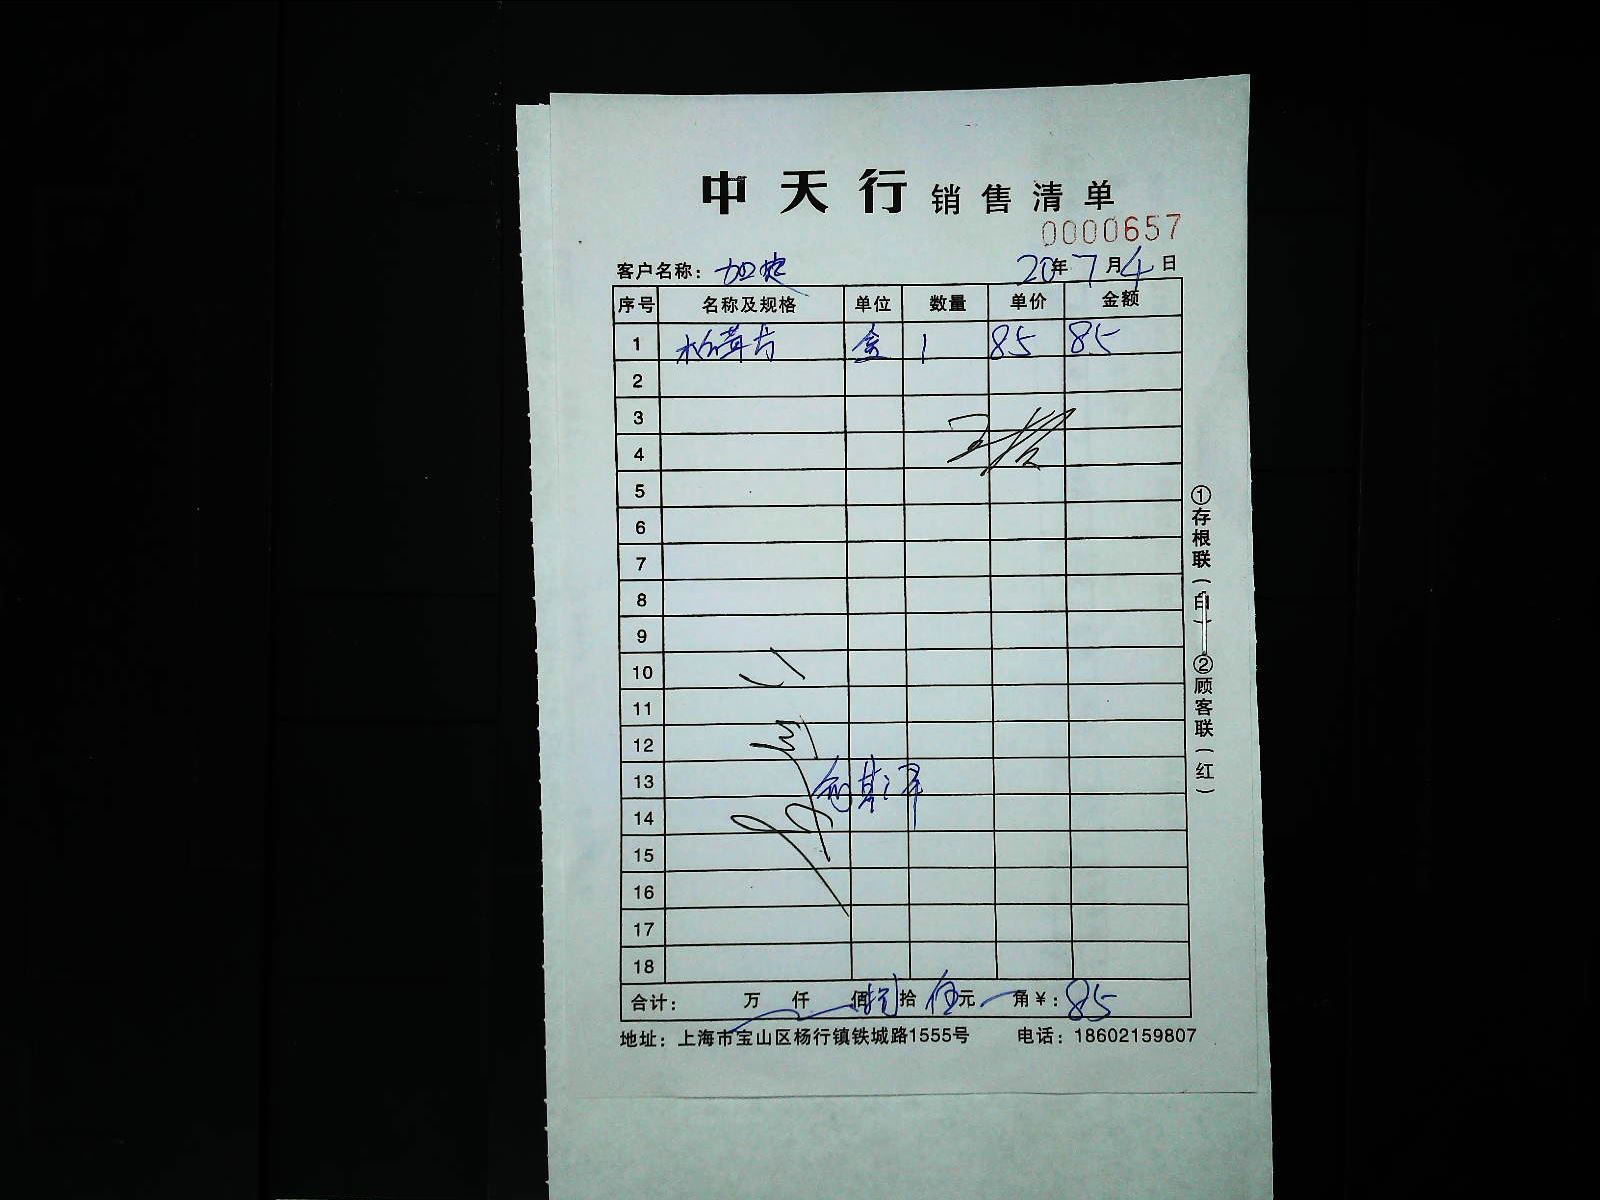 中天行 销售清单
0000657
客户名称：加地 20年7月4日
序号 名称及规格 单位 数量 单价 金额
1 盒 1 85 85
2
3
4
5
6
7
8
9
10
11
12
13
14
15
16
17
18
合计： 万 仟 佰捌拾伍元 角￥：85
地址：上海市宝山区杨行镇铁城路1555号 电话：18602159807
①存根联（白）②顾客联（红）